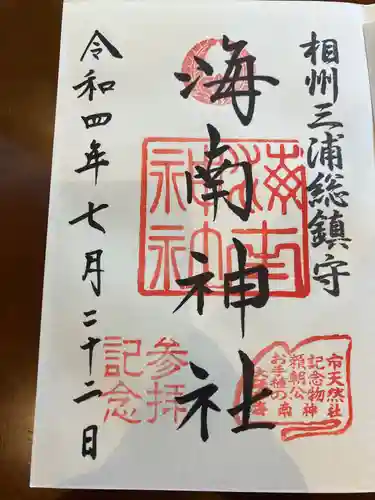 相州三浦総鎮守
海南神社
海南
神社
参拝
記念
市天然
記念物
頼朝公
お手植の
海南神社
令和四年七月二十二日